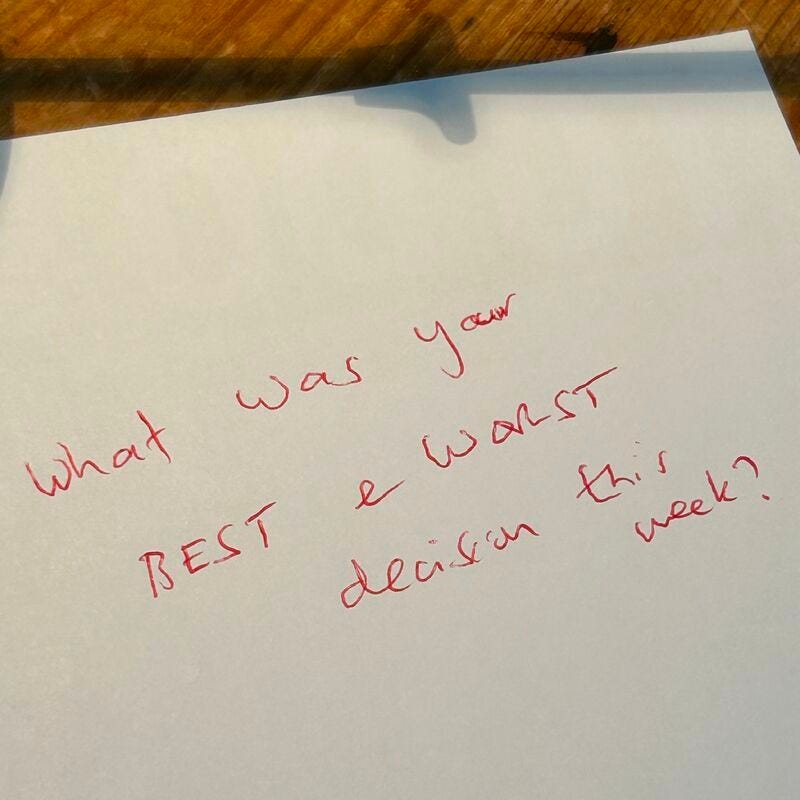 What was your
BEST & WORST
decision this
week?